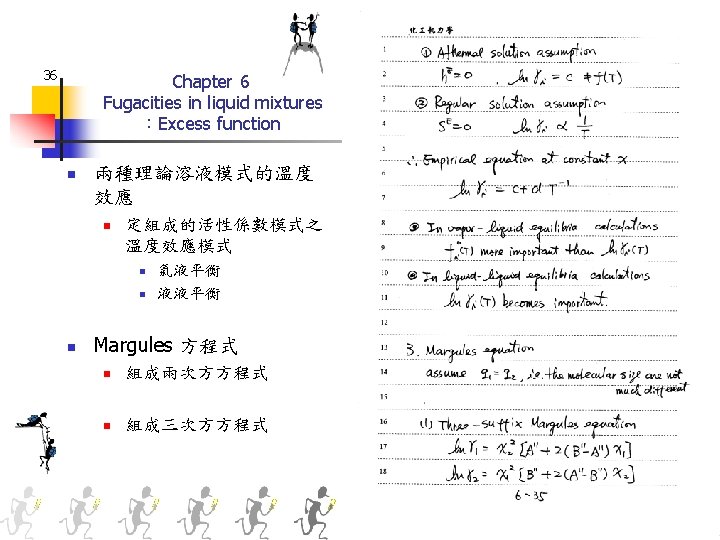 36
Chapter 6
Fugacities in liquid mixtures
：Excess function
兩種理論溶液模式的溫度
效應
定組成的活性係數模式之
溫度效應模式
氣液平衡
液液平衡
Margules 方程式
組成兩次方方程式
組成三次方方程式
化工熱力學
1 ① Athermal solution assumption
2 h^E = 0 , ln γi = c ≠ f(T)
3 ② Regular solution assumption
4 S^E = 0 ln γi ∝ 1/T
5 ∴ Empirical equation at constant x
6
7 ln γi = c + d T^-1
8 ③ In vapor-liquid equilibria calculations
9 fi(T) more important than ln γi(T)
10 ④ In liquid-liquid equilibria calculations
11 ln γi(T) becomes important.
12
13 3. Margules equation
14 assume q1 = q2, i.e. the molecular size are not
15 much different
16 (1) Three-suffix Margules equation
17 ln γ1 = x2^2 [A" + 2(B"-A") x1]
18 ln γ2 = x1^2 [B" + 2(A"-B") x2]
6-35